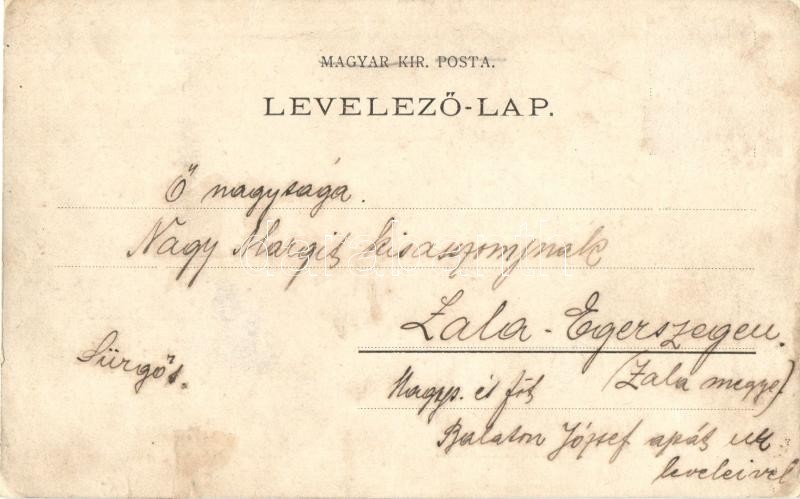 MAGYAR KIR. POSTA.
LEVELEZŐ-LAP.
Ő nagysága.
Nagy Margit kisasszonynak
Zala-Egerszegen.
Sürgős.
(Zala megye)
Nagys. és főt
Balaton József apát úr
leveleivel